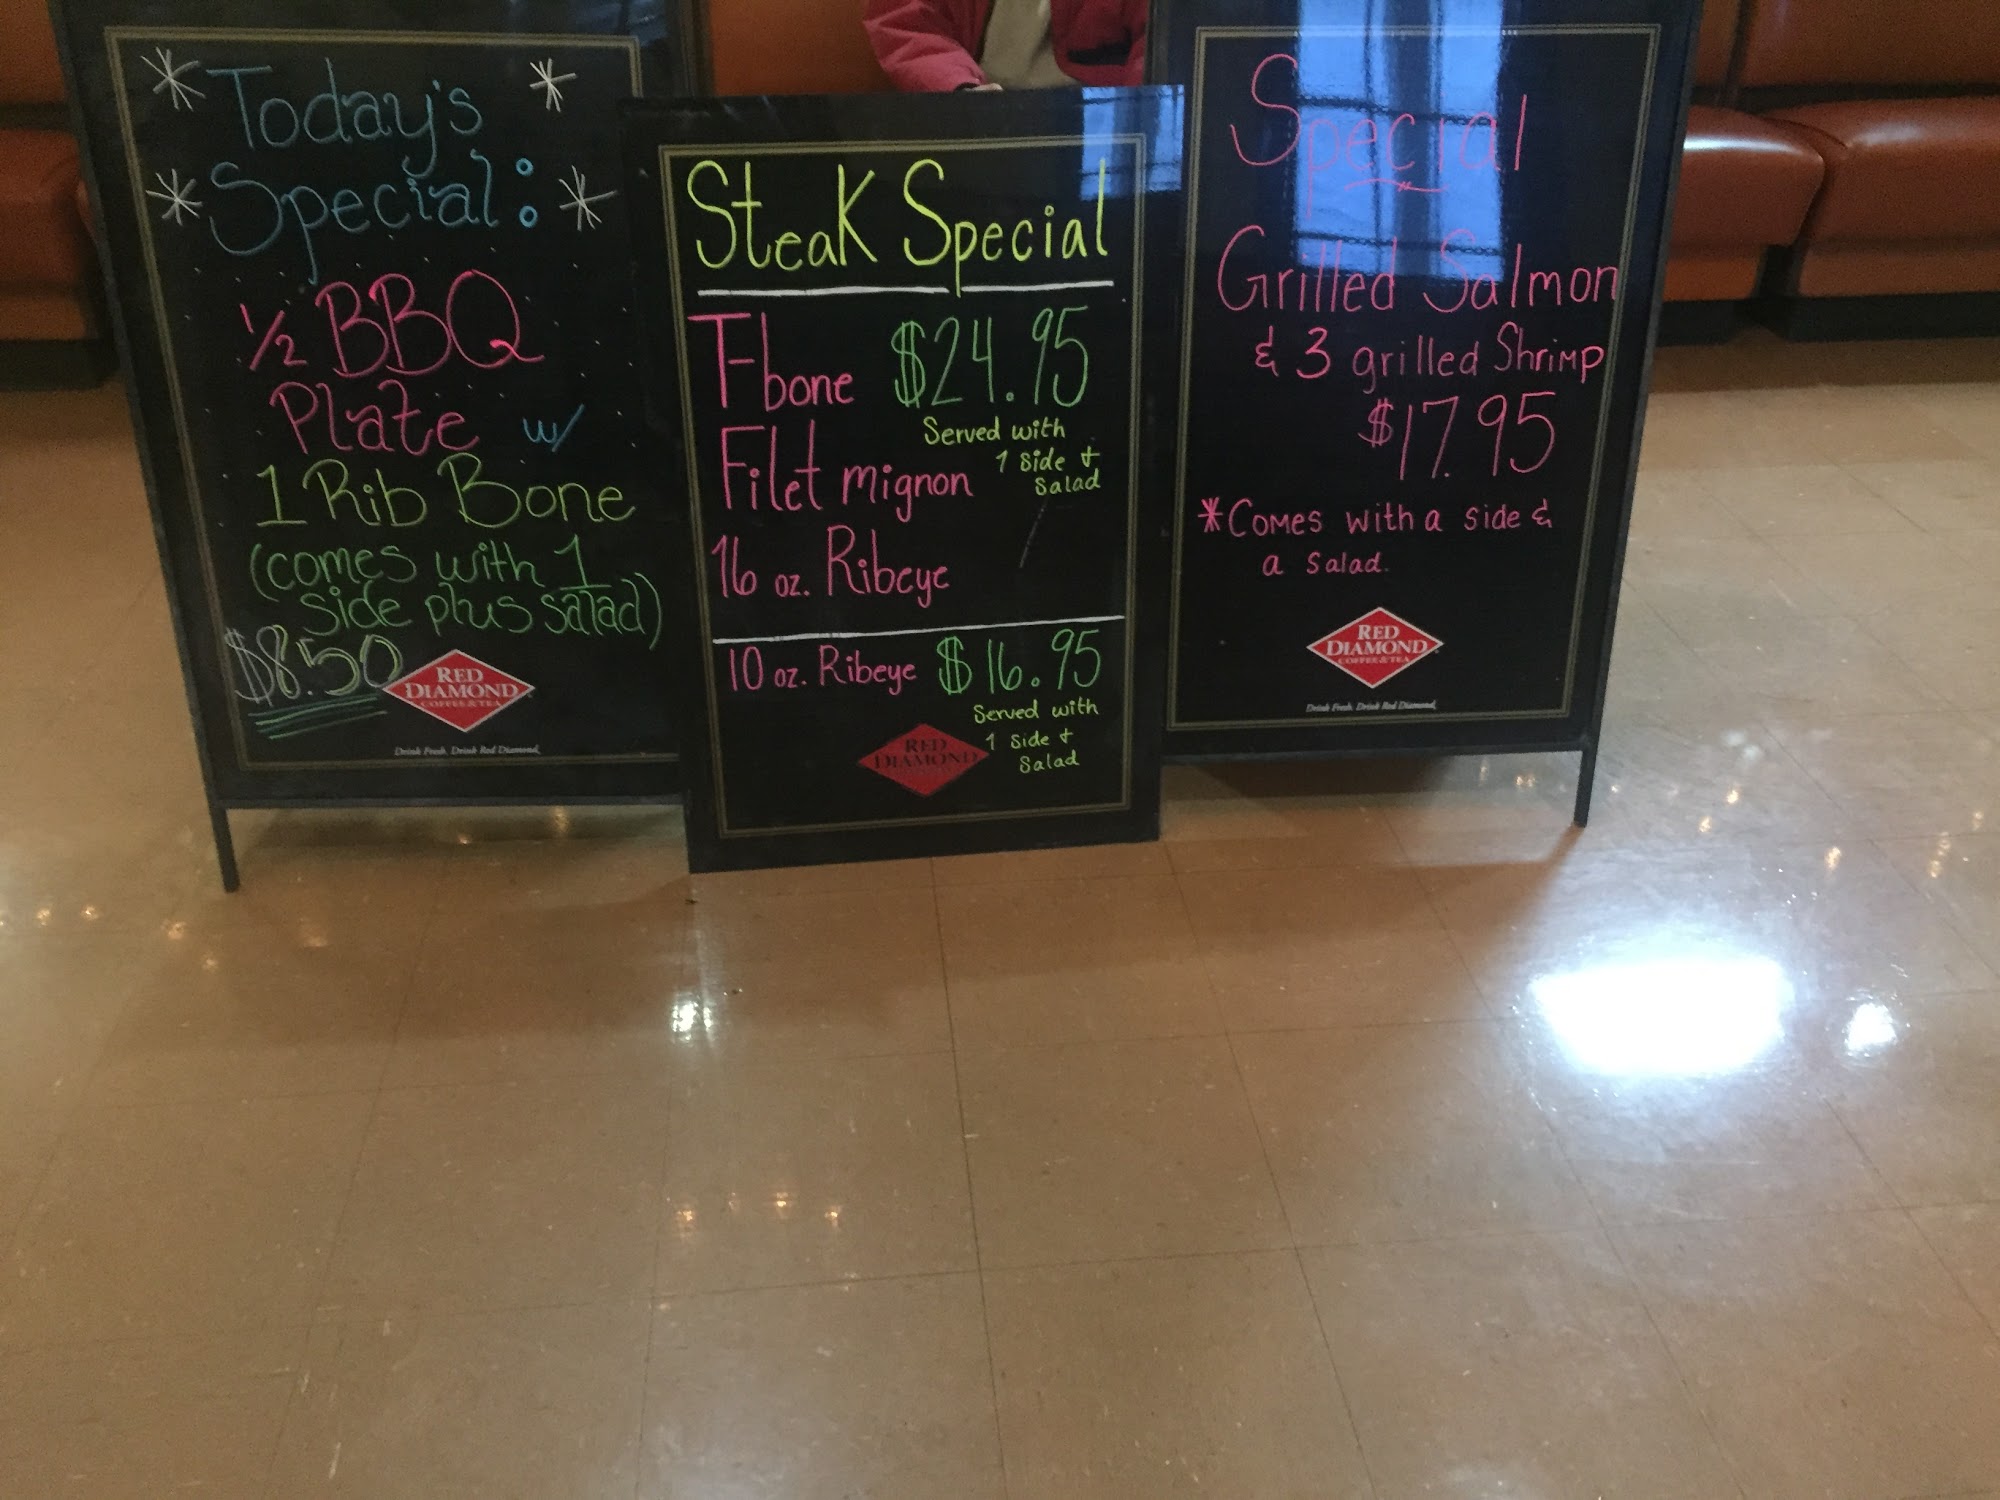 Today's
Special:
1/2 BBQ
Plate w/
1 Rib Bone
(comes with 1
side plus salad)
$8.50
RED
DIAMOND
COFFEE & TEA
Drink Fresh. Drink Red Diamond.
Steak Special
T-bone $24.95
Served with
1 side +
salad
Filet mignon
16 oz. Ribeye
10 oz. Ribeye $16.95
Served with
1 side +
salad
RED
DIAMOND
Special
Grilled Salmon
& 3 grilled Shrimp
$17.95
*Comes with a side &
a salad.
RED
DIAMOND
COFFEE & TEA
Drink Fresh. Drink Red Diamond.